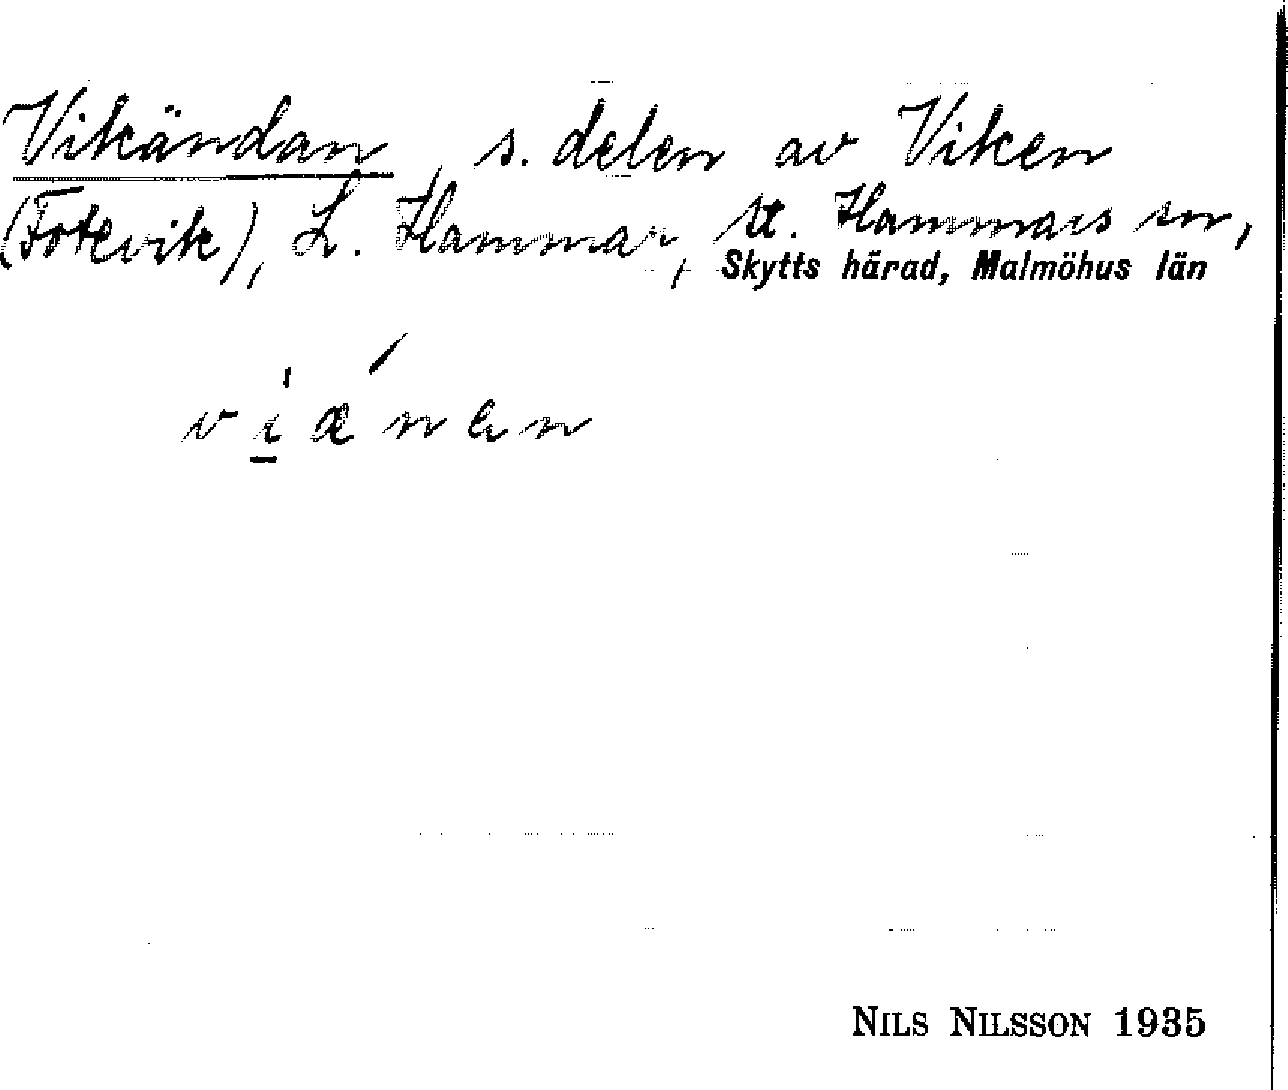 Vikändan, s. delen av Viken
(Fotevik), L. Hammar, St. Hammars sn,
Skytts härad, Malmöhus län
vi̲ ̍ǽnen
NILS NILSSON 1935